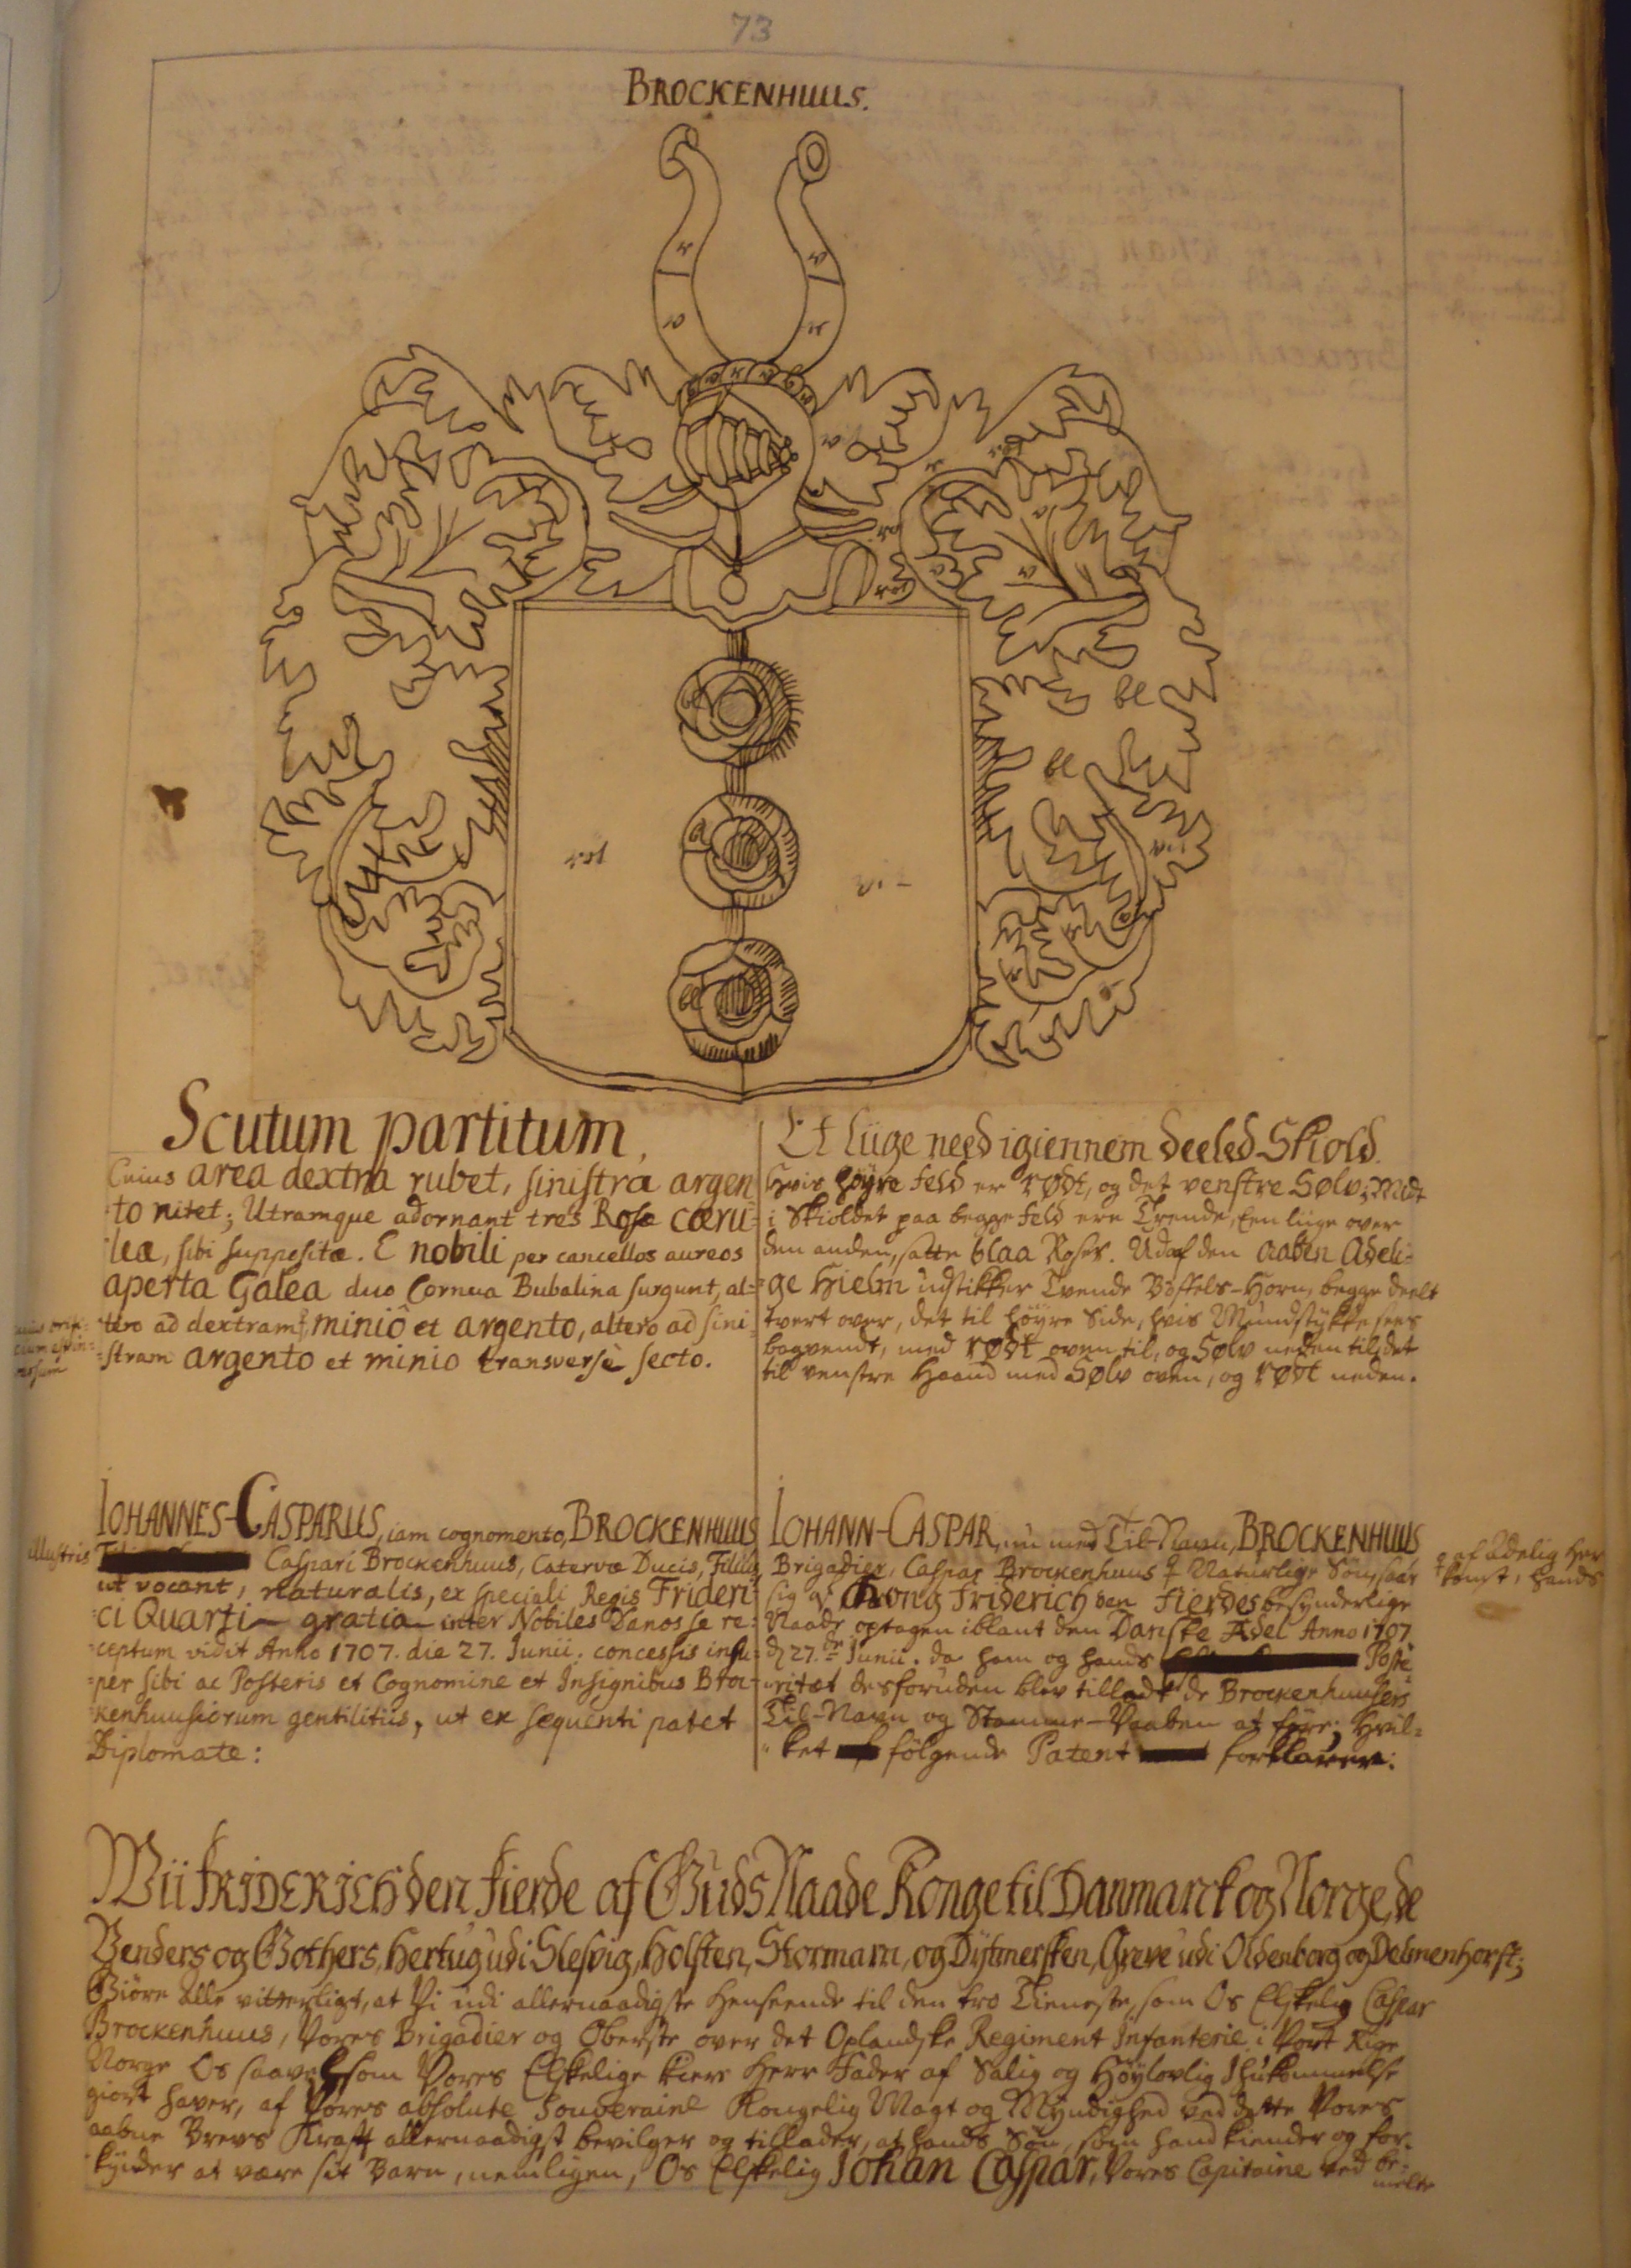 73
BROCKENHUUS.
r
v
v
r
v
r
v
bl
bl
bl
rot
vit
bl
bl
Scutum partitum,
Cuius area dextra rubet, sinistra argen
to nitet; Utramque adornant tres Rosæ cæru-
leæ, sibi suppositæ. E nobili per cancellos aureos
aperta Galea duo Cornua Bubalina surgunt, al-
tero ad dextram, minio et argento, altero ad sini-
stram argento et minio transversè secto.
Et liige need igiennem deeled Skiold.
Hvis høyre feld er rødt, og det venstre Sølv; Midt
i Skioldet paa begge feld ere Trende, Een liige over
den anden, satte blaa Roser. Udaf den aaben Adeli-
ge Hielm udstikker Tvende Bøffels-Horn, begge deelt
tvert over, det til høyre Side, hvis Mundstykke sees
bagvendt, med rødt oven til, og Sølv neden til, det
til venstre Haand med Sølv oven, og rødt neden.
IOHANNES-CASPARUS, iam cognomento, BROCKENHUUS
illustris
Caspari Brockenhuus, Catervæ Ducis, Filius,
ut vocant, naturalis, ex speciali Regis Frideri-
ci Quarti gratia inter Nobiles Danos se re-
ceptum vidit Anno 1707. die 27. Iunii. concessis insu-
per sibi ac Posteris et Cognomine et Insignibus Broc-
kenhuusiorum gentilitiis, ut ex sequenti patet
Diplomate:
IOHANN-CASPAR, nu med Til-Navn, BROCKENHUUS
Brigadier, Caspar Brockenhuus Naturlige Søn, saae
af Adelig Her
komst, hands
sig af Kong Friderich den fierdes besynderlige
Naade optagen iblant den Danske Adel Anno 1707
d 27.de Iunii. da ham og hands Poste-
ritæt desforuden blev tilladt de Brockenhuusers
Til-Navn og Stamme-Vaaben at føre; Hvil-
ket følgende Patent forklarer:
Wii FRIDERICH den fierde af Guds Naade Konge til Danmarck og Norge, de
Venders og Gothers, Hertug udi Slesvig, Holsten, Stormarn, og Dytmersken, Greve udi Oldenborg og Delmenhorst;
Giøre Alle vitterligt, at Vi udi allernaadigste Henseende til den tro Tieneste, som Os Elskelig Caspar
Brockenhuus, Vores Brigadier og Oberste over det Oplandske Regiment Infanterie i Vort Rige
Norge Os saavelsom Vores Elskelige kiere Herr Fader af Salig og Høylovlig Ihukommelse
giort haver, af Vores absolute Souveraine Kongelig Magt og Myndighed ved dette Vores
aabne Brevs Krafft allernaadigst bevilger og tillader, at hands Søn, som hand kiender og for-
kynder at være sit Barn, nemligen, Os Elskelig Johan Caspar, Vores Capitaine ved be-
melte